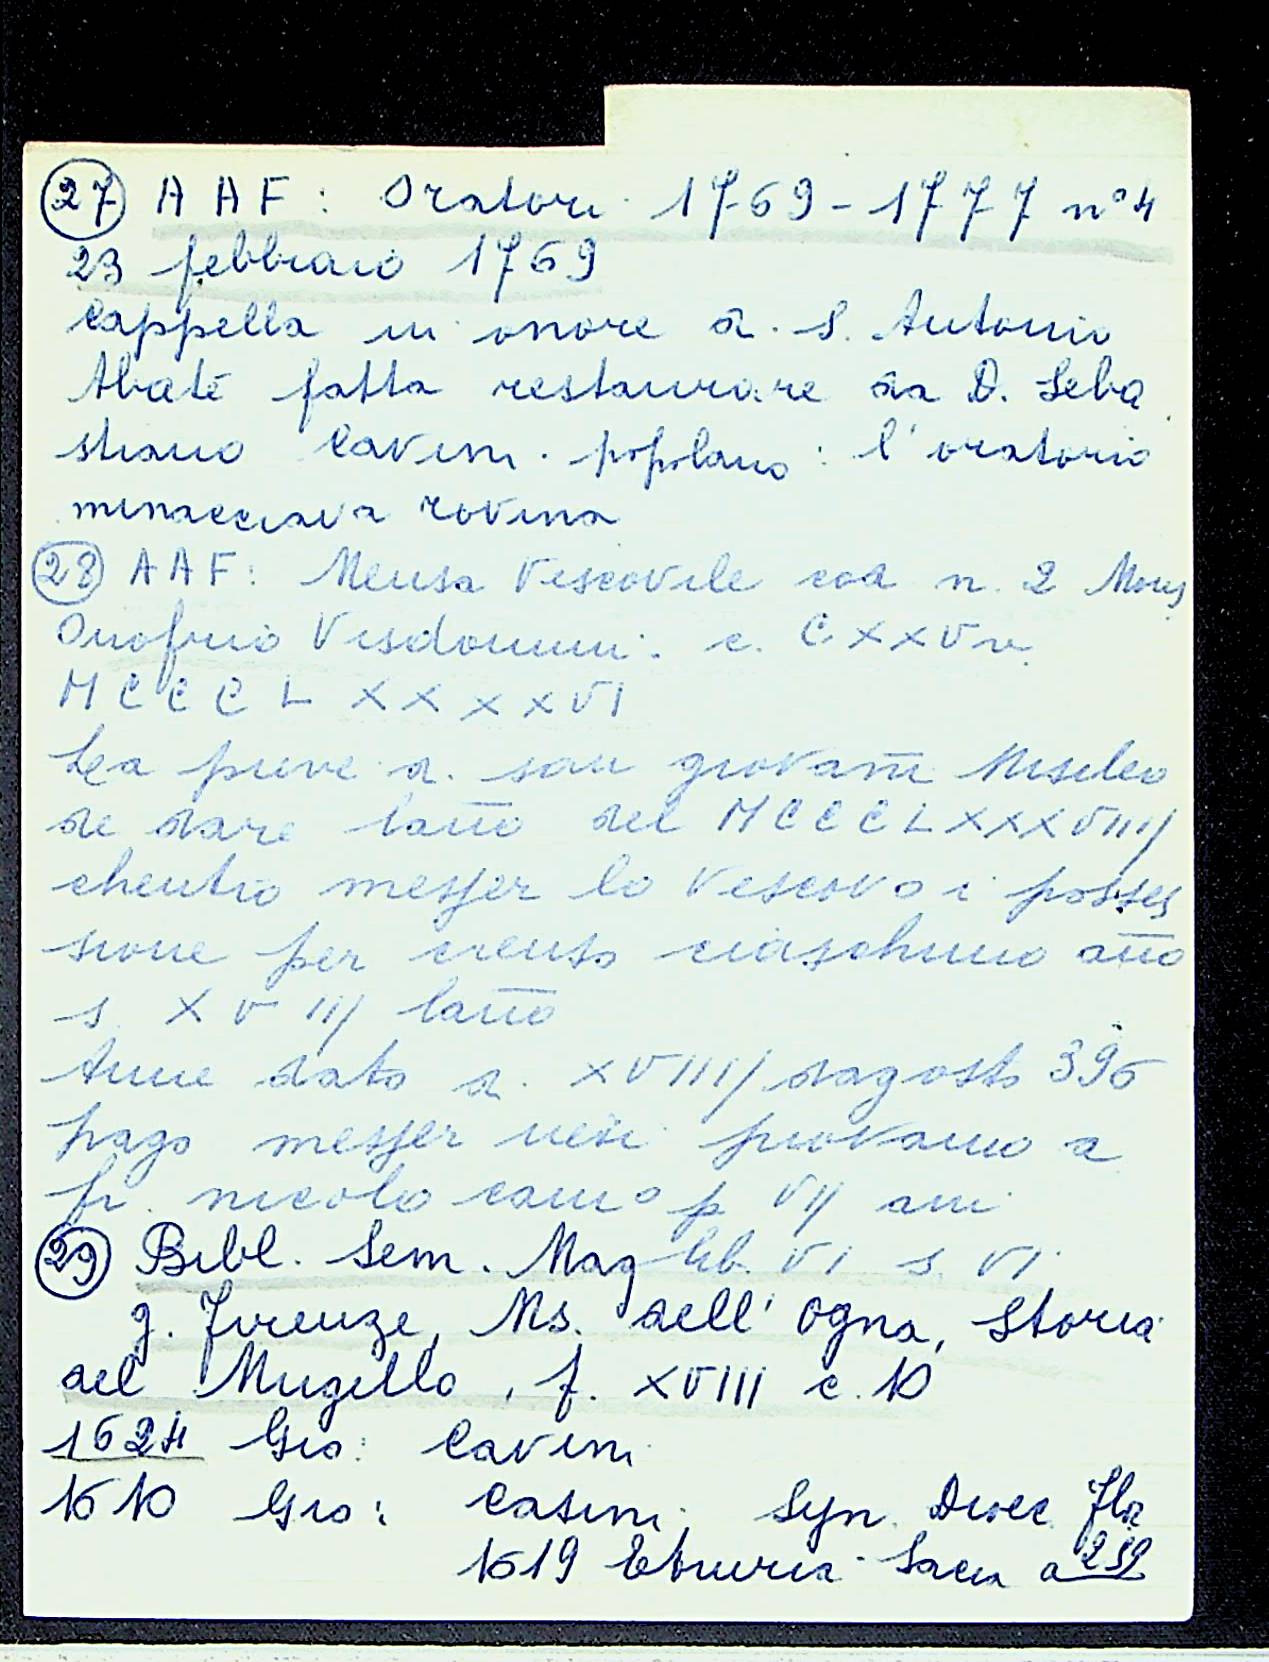 27 AAF: Oratori 1769-1777 n° 4
23 febbraio 1769
Cappella in onore d. S. Antonio
Abate fatta restaurare da D. Seba
stiano Cavini popolano: l'oratorio
minacciava rovina
28 AAF: Mensa Vescovile cod n. 2 Mons
Onofrio Visdomini. c. CXXVv.
MCCCLXXXXVI
La pieve d. san giovani
de dare lanno del MCCCLXXXVIIII
chentro messer lo Vescovo i posses
sione per censo ciaschuno anno
s. XVIII lanno
Anne dato d. XVIIII dagosto 396
pago messer neri piovano a
fr. nicolo p VII
29 Bibl. Sem. Mag lib. VI s. VI
g. Firenze, Ms. dell'Ogna, Storia
del Mugello, f. XVIII c. 10
1624 Gio: Cavini
1610 Gio: Casini, Syn. Dioec. Flor
1619 Etruria Sacra a 259